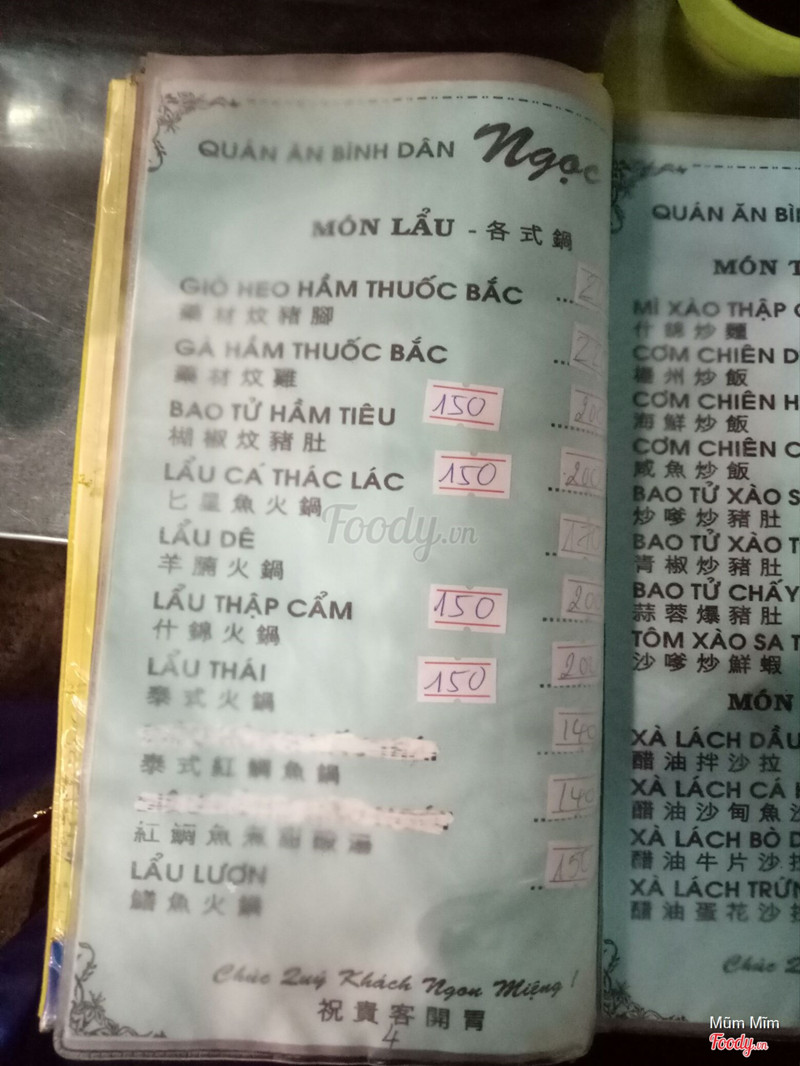 QUÁN ĂN BÌNH DÂN Ngọc
MÓN LẨU - 各式鍋
GIÒ HEO HẦM THUỐC BẮC ...
藥材炆豬腳
GÀ HẦM THUỐC BẮC ...
藥材炆雞
BAO TỬ HẦM TIÊU 150
椒炆豬肚
LẨU CÁ THÁC LÁC 150 200
魚火鍋
LẨU DÊ
羊腩火鍋
LẨU THẬP CẨM 150 200
什錦火鍋
LẨU THÁI 150 200
泰式火鍋
140
泰式紅鯛魚鍋
140
紅鯛魚煮
LẨU LƯƠN 150
鱔魚火鍋
Chúc Quý Khách Ngon Miệng !
祝貴客開胃
4
QUÁN ĂN
MÓN
MÌ XÀO THẬP
什錦炒麵
CƠM CHIÊN
州炒飯
CƠM CHIÊN
海鮮炒飯
CƠM CHIÊN
咸魚炒飯
BAO TỬ XÀO
炒嗲炒豬肚
BAO TỬ XÀO
青椒炒豬肚
BAO TỬ CHẤY
蒜蓉爆豬肚
TÔM XÀO SA
沙嗲炒鮮蝦
MÓN
XÀ LÁCH DẦU
醋油拌沙拉
XÀ LÁCH CÁ
醋油沙甸魚
XÀ LÁCH BÒ
醋油牛片沙
XÀ LÁCH TRỨNG
醋油蛋花沙
Chúc
祝
Foody.vn
Mũm Mĩm
Foody.vn